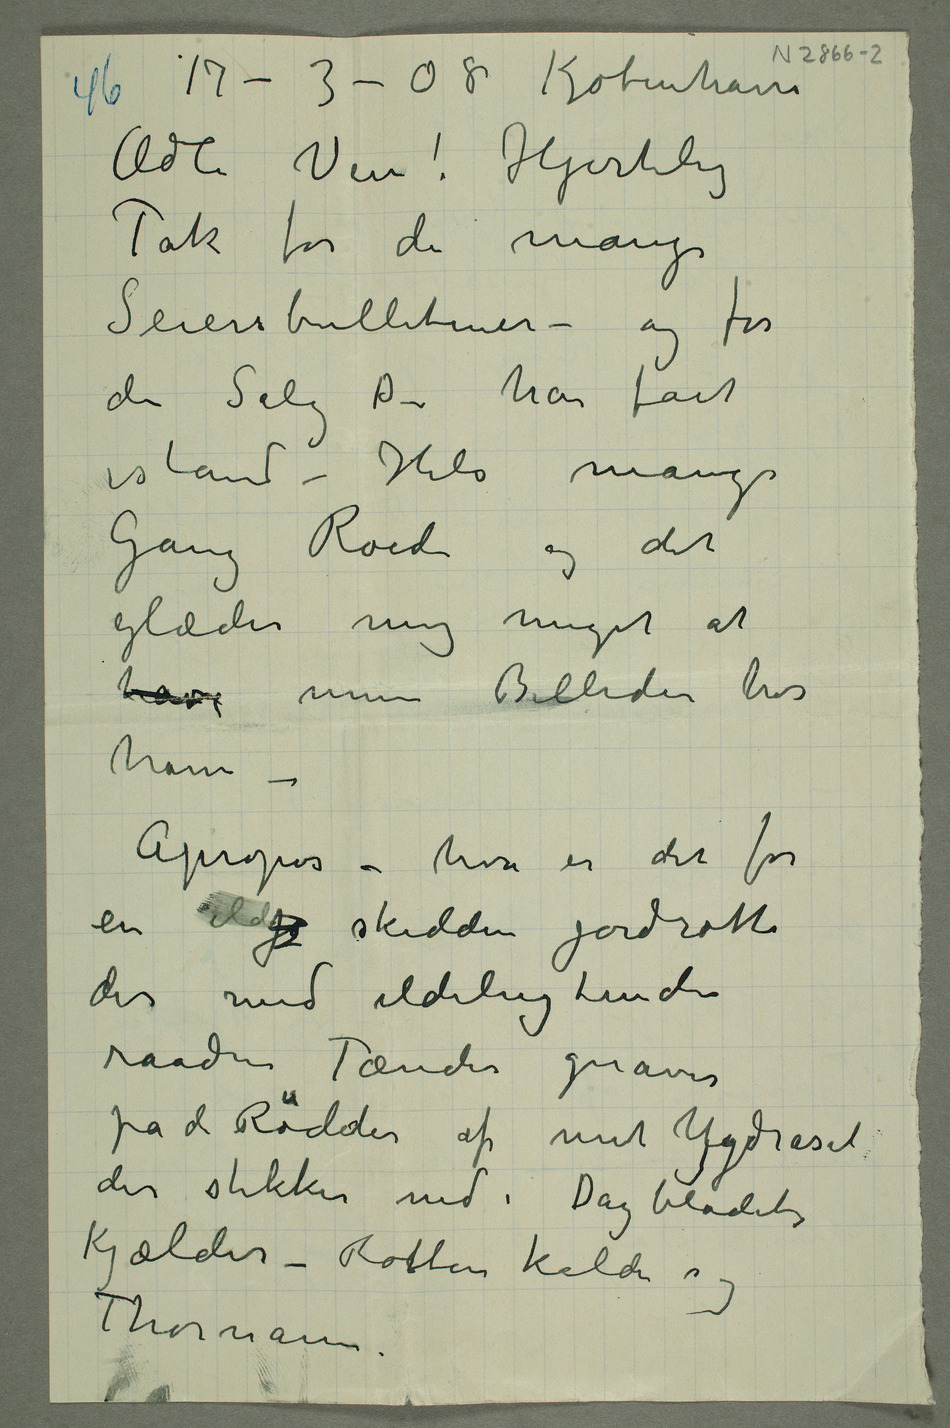 N 2866-2
46 17 – 3 – 08 Kjøbenhavn
Ædle Ven! Hjertelig
Tak for de mange
Seiersbulletiner – og for
de Salg D– har faaet
istand – Hils mange
Gang Roede og det
glæder mig meget at
have mine Billeder hos
ham –
Apropos – hva er det for
en ildg skidden jordrotte
der med ildelugtende
raadne Tænder gnaver
paa de Rødder af mit Ygdrasil
der stikker ned i Dagbladets
Kjælder – Rotten kalde sig
Thormann.